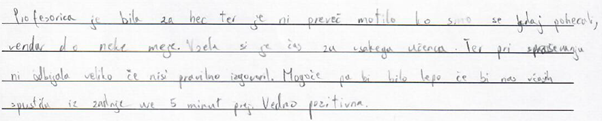 Profesorica je bila za hec ter je ni preveč motilo ko smo se kdaj pohecal,
vendar do neke meje. Vzela si je čas za vsakega učenca. Ter pri spraševanju
ni odbijala veliko če nisi pravilno izgovoril. Mogoče pa bi bilo lepo če bi nas včasih
spustila iz zadnje ure 5 minut prej. Vedno pozitivna.